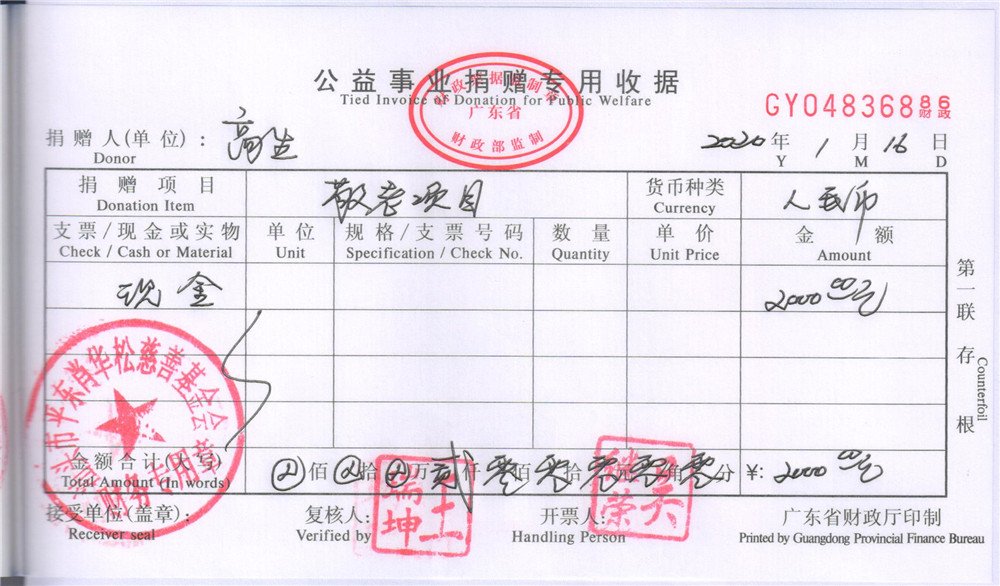 公益事业捐赠专用收据
Tied Invoice of Donation for Public Welfare
广东省
财政部监制
GY04836886
财政
捐赠人(单位): 高生
Donor
2020年 1月 16日
Y M D
捐赠项目 敬老项目 货币种类 人民币
Donation Item Currency
支票/现金或实物 单位 规格/支票号码 数量 单价 金额
Check / Cash or Material Unit Specification / Check No. Quantity Unit Price Amount
现金 2000 00元
第一联存根
Counterfoil
市平东肖华松慈善基金会
财务专用章
金额合计(大写) 佰 拾 万 贰仟 零佰 零拾 零元 零角 零分 ¥: 2000 00元
Total Amount (In words)
接受单位(盖章): 复核人: 开票人: 广东省财政厅印制
Receiver seal Verified by Handling Person Printed by Guangdong Provincial Finance Bureau